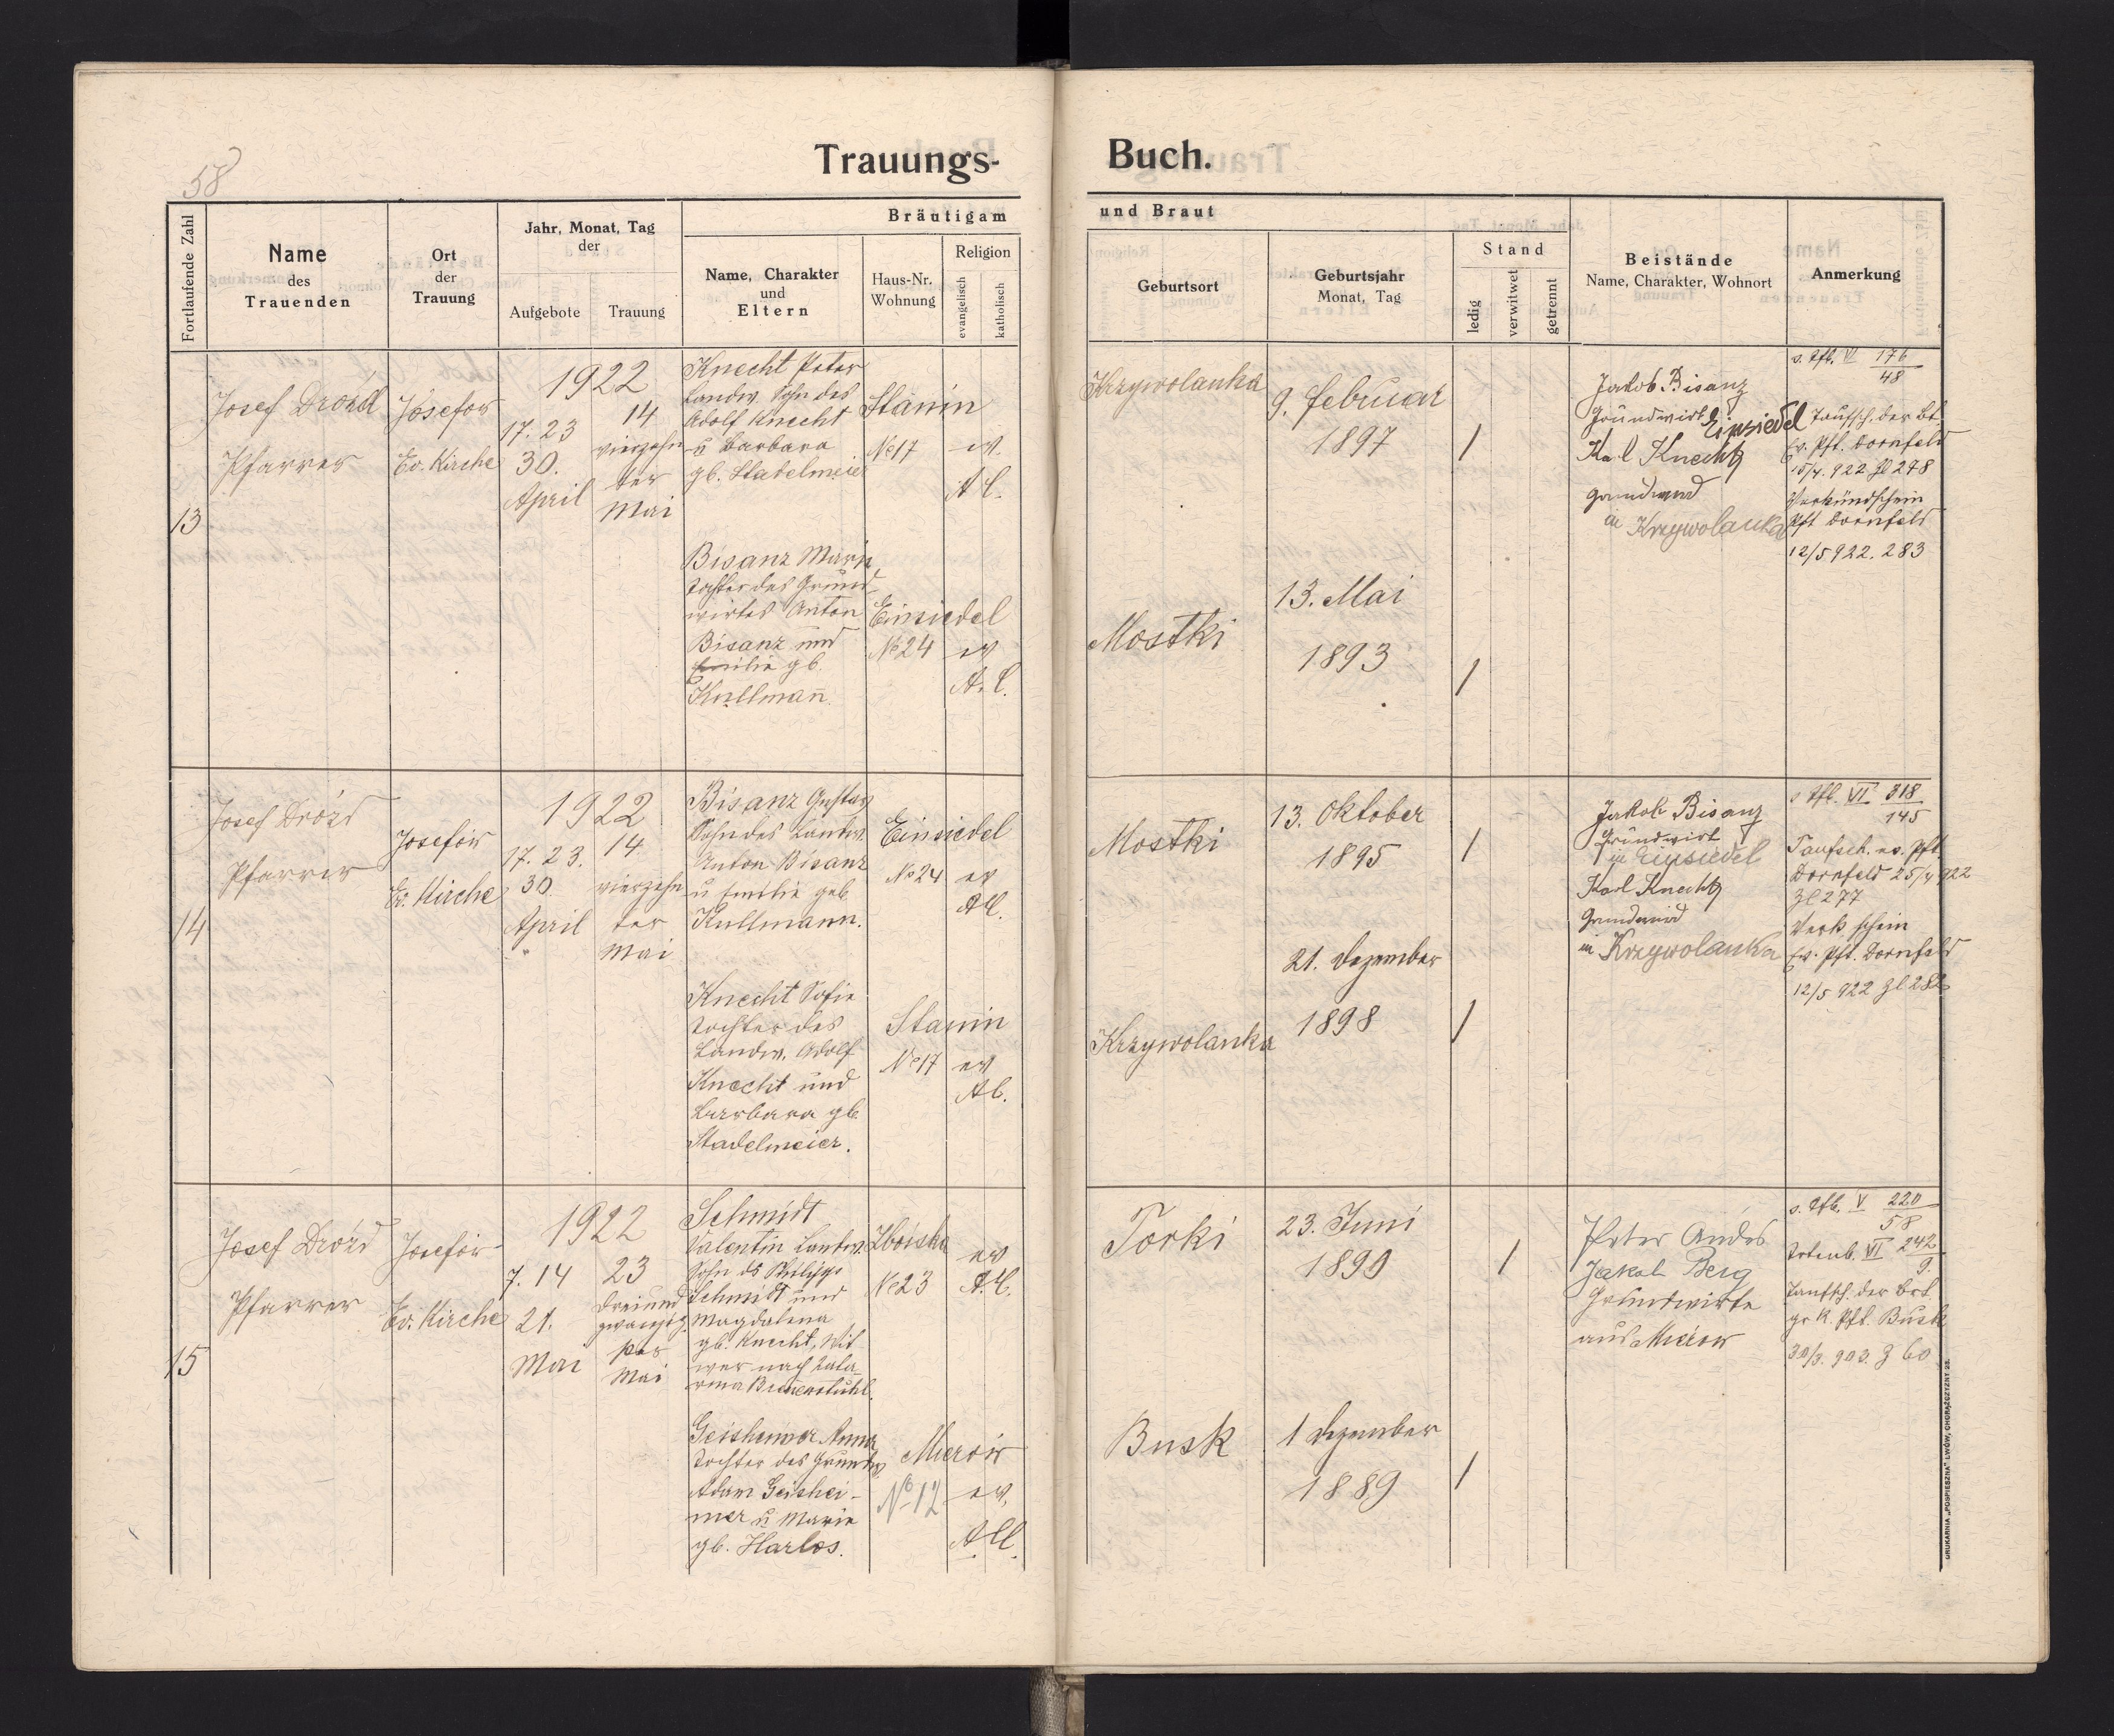 58
Trauungs-
Buch.
Fortlaufende Zahl
Name
des
Trauenden
Ort
der
Trauung
Jahr, Monat, Tag
der
Aufgebote
Trauung
Bräutigam
Name, Charakter
und
Eltern
Haus-Nr.
Wohnung
Religion
evangelisch
katholisch
und Braut
Geburtsort
Geburtsjahr
Monat, Tag
Stand
ledig
verwitwet
getrennt
Beistände
Name, Charakter, Wohnort
Anmerkung
13
Josef Drózd
Pfarrer
Josefow
Ev. Kirche
1922
17. 23
30.
April
14
vierzehn
ter
Mai
Knecht Peter
Landw. Sohn des
Adolf Knecht
u Barbara
gb. Stadelmeier
Stanin
No 17
ev.
A.C.
Krzywolanka
9. Februar
1897
/
Jakob Bisanz
Grundwirt Einsiedel
Karl Knecht
Grundwirt
in Krzywolanka
s. Tfb. VI 176
48
Taufsch. der Bt.
Ev. Pft. Dornfeld
15/4. 922. Zl 278
Verkündschein
Pft Dornfeld
12/5 922. 283
Bisanz Marie
Tochter des Grund-
wirtes Anton
Bisanz und
Emilie gb.
Kullmann.
Einsiedel
No 24
ev
A.C.
Mostki
13. Mai
1893
/
14
Josef Drózd
Pfarrer
Josefów
Ev. Kirche
1922
17. 23.
30
April
14
vierzehn
ter
Mai
Bisanz Gustav
Sohn des Landw.
Anton Bisanz
u Emilie geb
Kullmann.
Einsiedel
No 24
ev
AC.
Mostki
13. Oktober
1895
/
Jakob Bisanz
Grundwirt
in Einsiedel
Karl Knecht
Grundwird
in Krzywolanka
s Tfb. VII 318
145
Taufsch. ev. Pft.
Dornfeld 25/4 922
Zl 277
Verk. schein
Ev. Pft. Dornfeld
12/5 922 Zl 282
Knecht Sofie
Tochter des
Landw. Adolf
Knecht und
Barbara gb.
Stadelmeier.
Stanin
No 17
ev
AC.
Krzywolanka
21. Dezember
1898
/
15
Josef Drózd
Pfarrer
Josefów
Ev. Kirche
1922
7. 14
21.
Mai
23
dreiund
zwanzig
ster
Mai
Schmidt
Valentin Landw.
Sohn ds Philipp
Schmidt und
Magdalena
gb. Knecht, Wit
wer nach Kata-
rina Bienenstuhl.
Zboiska
No 23
ev
A.C.
Torki
23. Juni
1899
/
Peter Andes
Jakob Berg
Grundwirte
aus Mierow
s. Tfb. V 220
58
Totenb. VI 242
9.
Taufsch. der Brt.
gr k. Pft. Busk
30/3. 903. Z 60
Geisheimer Anna
Tochter des Grundw
Adam Geishei-
mer u Marie
gb. Harlos.
Mierów
No 12
ev.
A.C.
Busk
1 Dezember
1889
/
DRUKARNIA „POSPIESZNA" LWÓW, CHORĄŻCZYZNY 22.